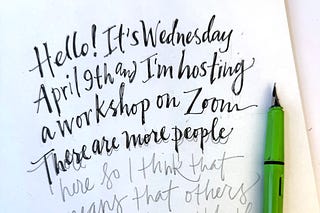 Hello! It's Wednesday
April 9th and I'm hosting
a workshop on Zoom
There are more people
here so I think that
means that others